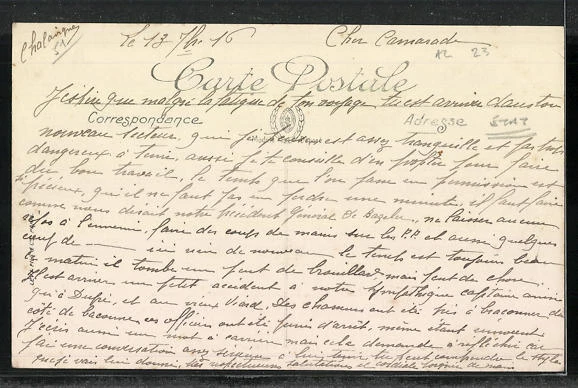 Chalaignes
51
le 13 7bre 16 Cher Camarade
A2 23
Carte Postale
J'espère que malgré la fatigue de ton voyage tu est arrivé dans ton
Correspondance Adresse
nouveau secteur, qui j'espère est assez tranquille et pas trop
dangereux à tenir, aussi je te conseille d'en profiter pour faire
du bon travail, le temps que l'on passe en permission est
précieux, qu'il ne faut pas en perdre une minute, il faut faire
comme nous disait notre président Général de Bazelaire, ne laisser aucun
repos à l'ennemi, faire des coups de mains sur les P.P. et aussi quelques
coups de ici rien de nouveau le temps est toujours beau
le matin il tombe un peu de brouillard mais peu de chose
Il est arrivé un petit accident à notre sympathique capitaine ainsi
qu'à Dupré, et au vieux Viard, Des chasseurs ont été pris à braconner du
côté de ces officiers ont été punis d'arrêt, même étant innocent
J'écris aussi un mot à mais cela demande à réfléchir car
j'ai une conversation assez sérieuse à lui tenir tu peut comprendre le
que je vais lui donner, des respectueuses salutations et cordiale poignée de mains